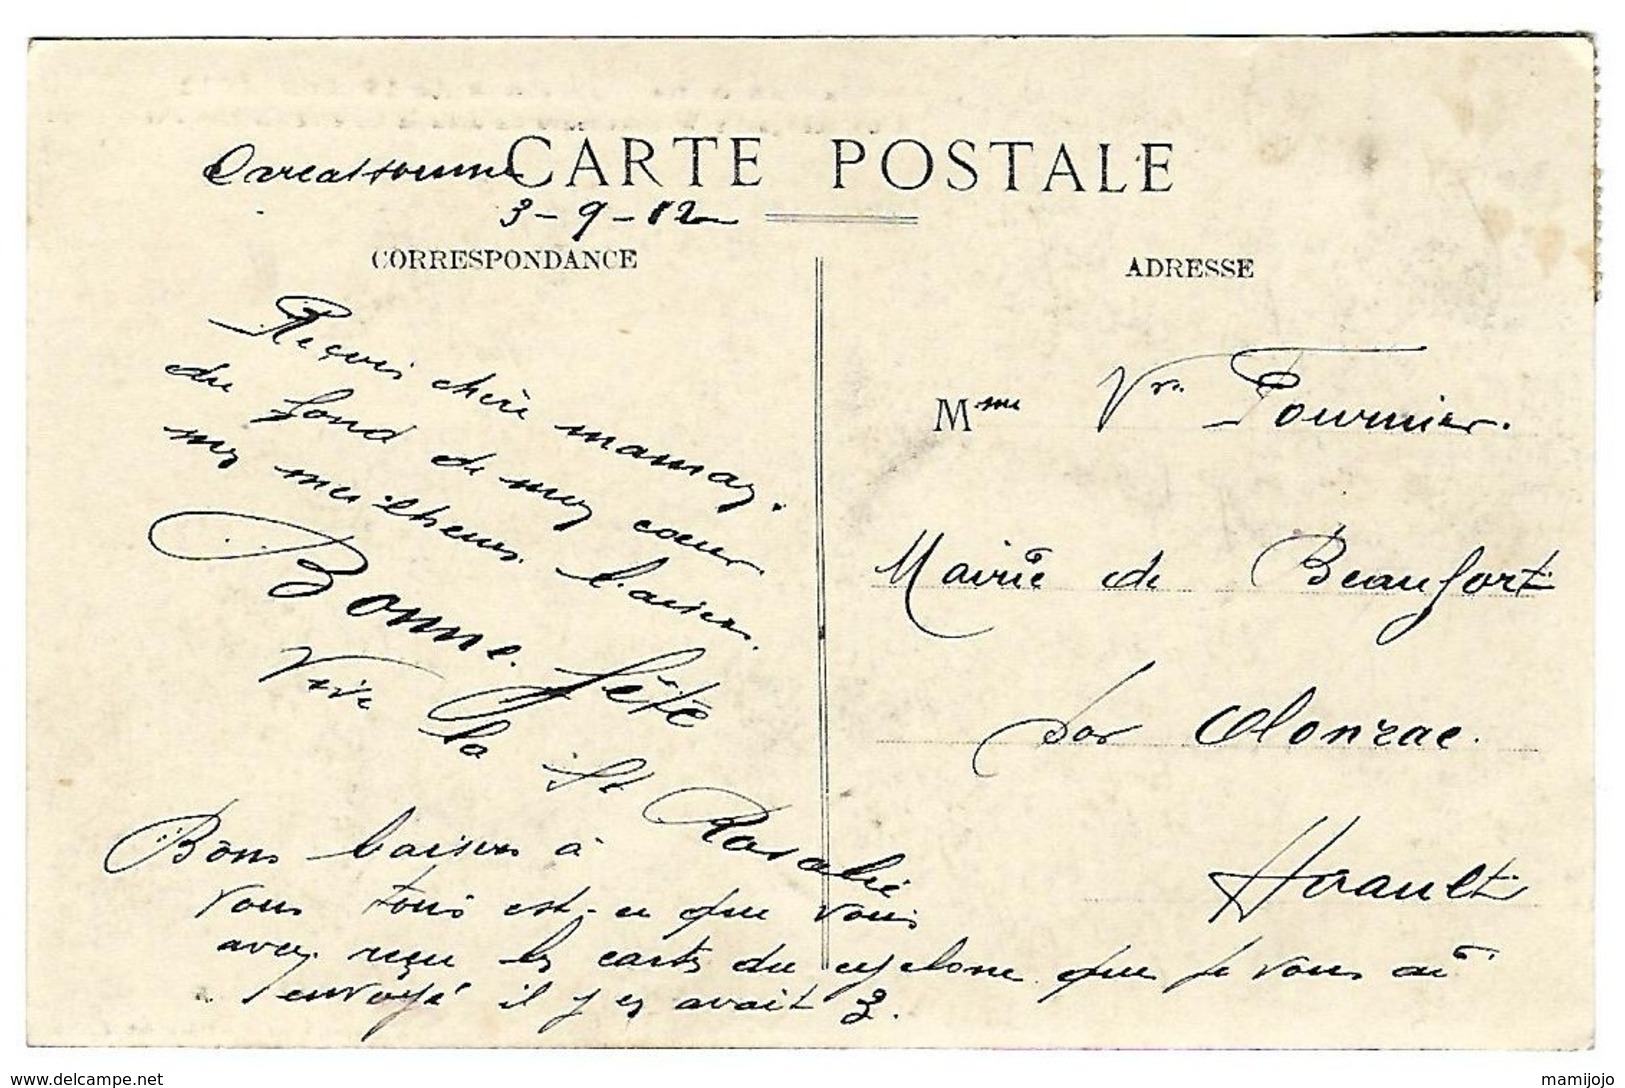 Carcassonne
CARTE POSTALE
3-9-12
CORRESPONDANCE
Reçois chère maman,
du fond de mon cœur
mes meilheurs baisers.
Bonne fête
Vive la St Rosalie
Bons baisers à
vous tous est-ce que vous
avez reçu les cartes du cyclone que je vous ai
envoyé il y en avait 3.
ADRESSE
Mme Vve Fournier.
Mairie de Beaufort
par Olonzac.
Hérault
www.delcampe.net
mamijojo